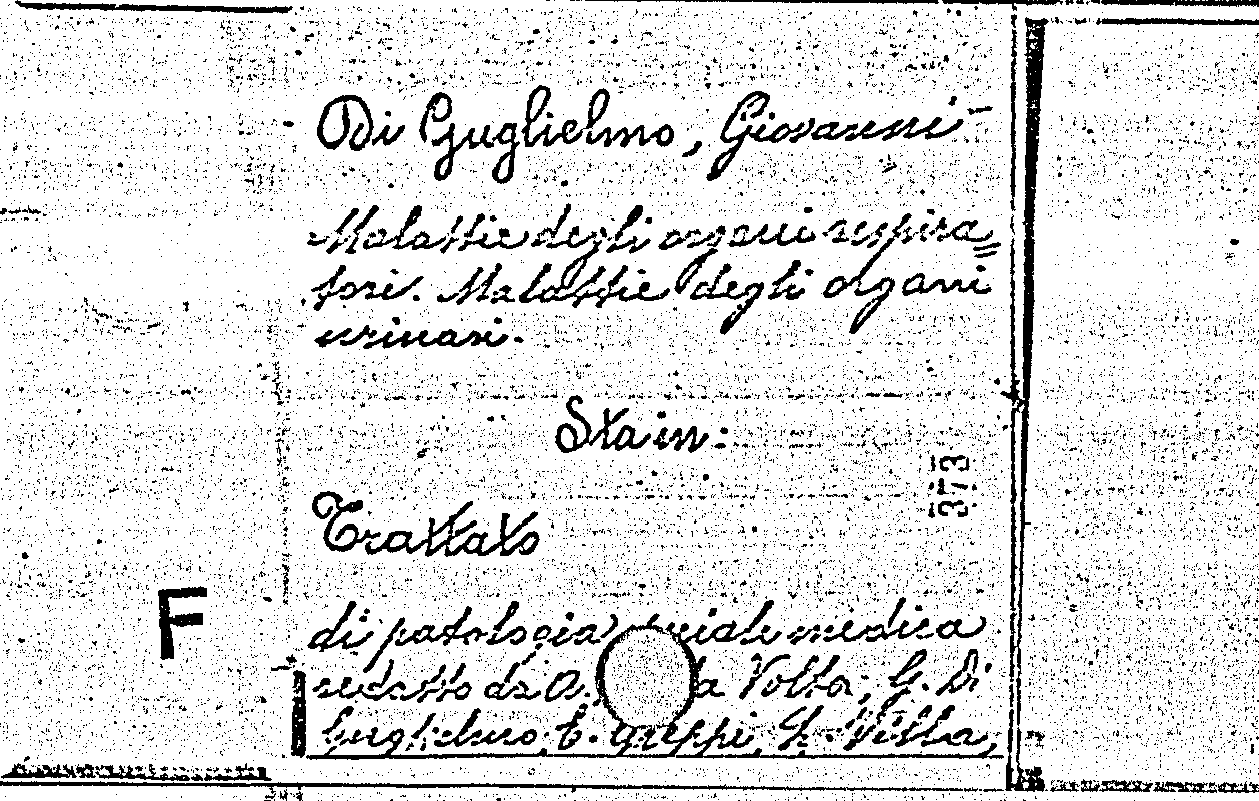 Di Guglielmo, Giovanni
Malattie degli organi respira=
tori. Malattie degli organi
urinari.
Sta in:
373
Trattato
F
di patologia speciale medica
redatto da A. da Volta, G. Di
Guglielmo, E. Greppi, L. Villa,